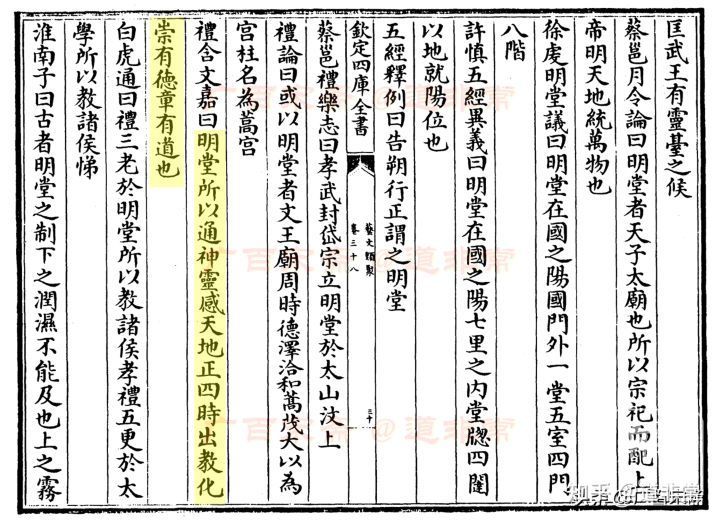 匡武王有靈臺之候
蔡邕月令論曰明堂者天子太廟也所以宗祀而配上
帝明天地統萬物也
徐虔明堂議曰明堂在國之陽國門外一堂五室四門
八階
許慎五經異義曰明堂在國之陽七里之內堂牕四闥
以地就陽位也
五經釋例曰告朔行正謂之明堂
欽定四庫全書
藝文類聚
卷三十八
三十
蔡邕禮樂志曰孝武封岱宗立明堂於太山汶上
禮論曰或以明堂者文王廟周時德澤洽和蒿茂大以為
宫柱名為蒿宫
禮含文嘉曰明堂所以通神靈感天地正四時出教化
崇有德章有道也
白虎通曰禮三老於明堂所以教諸侯孝禮五更於太
學所以教諸侯悌
淮南子曰古者明堂之制下之潤濕不能及也上之霧
知乎 @道非常